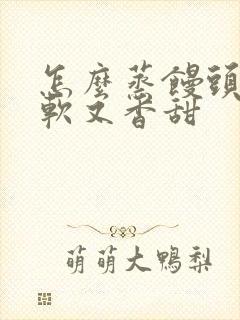 怎麼蒸饅頭
軟又香甜
萌萌大鴨梨